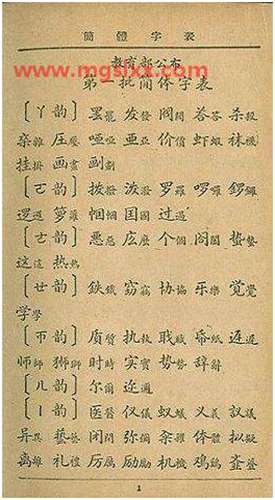 簡體字表
www.mgsixx.com
教育部公布
第一批简体字表
〔ㄚ韵〕 罢罷 发發 阀閥 荅答 杀殺
杂雜 压壓 哑啞 亚亞 价價 虾蝦 袜襪
挂掛 画畫 划劃
〔ㄛ韵〕 拨撥 泼潑 罗羅 啰囉 锣鑼
逻邏 箩籮 帼幗 国國 过過
〔ㄜ韵〕 恶惡 庅麽 个個 阁閣 蛰蟄
这這 热熱
〔ㄝ韵〕 鉄鐵 窃竊 协協 乐樂 觉覺
学學
〔ㄭ韵〕 质質 执執 职職 迟遲
师師 狮獅 时時 实實 势勢 辞辭
〔ㄦ韵〕 尔爾 迩邇
〔ㄧ韵〕 医醫 仪儀 蚁蟻 义義 议議
异異 艺藝 闭閉 弥彌 籴糴 体體 拟擬
离離 礼禮 厉厲 励勵 机機 鸡鷄
1